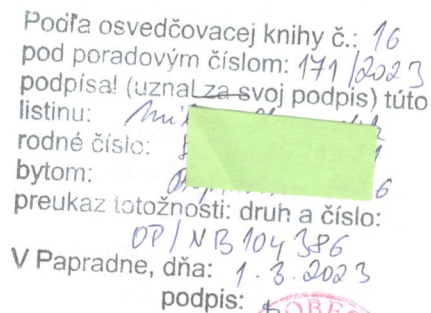 Podľa osvedčovacej knihy č.: 16
pod poradovým číslom: 171/2023
podpísal (uznal za svoj podpis) túto
listinu:
rodné číslo:
bytom:
preukaz totožnosti: druh a číslo:
OP/NB104386
V Papradne, dňa: 1.3.2023
podpis:
OBEC